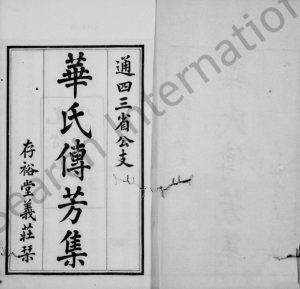 通四三省公支
華氏傳芳集
存裕堂義莊栞